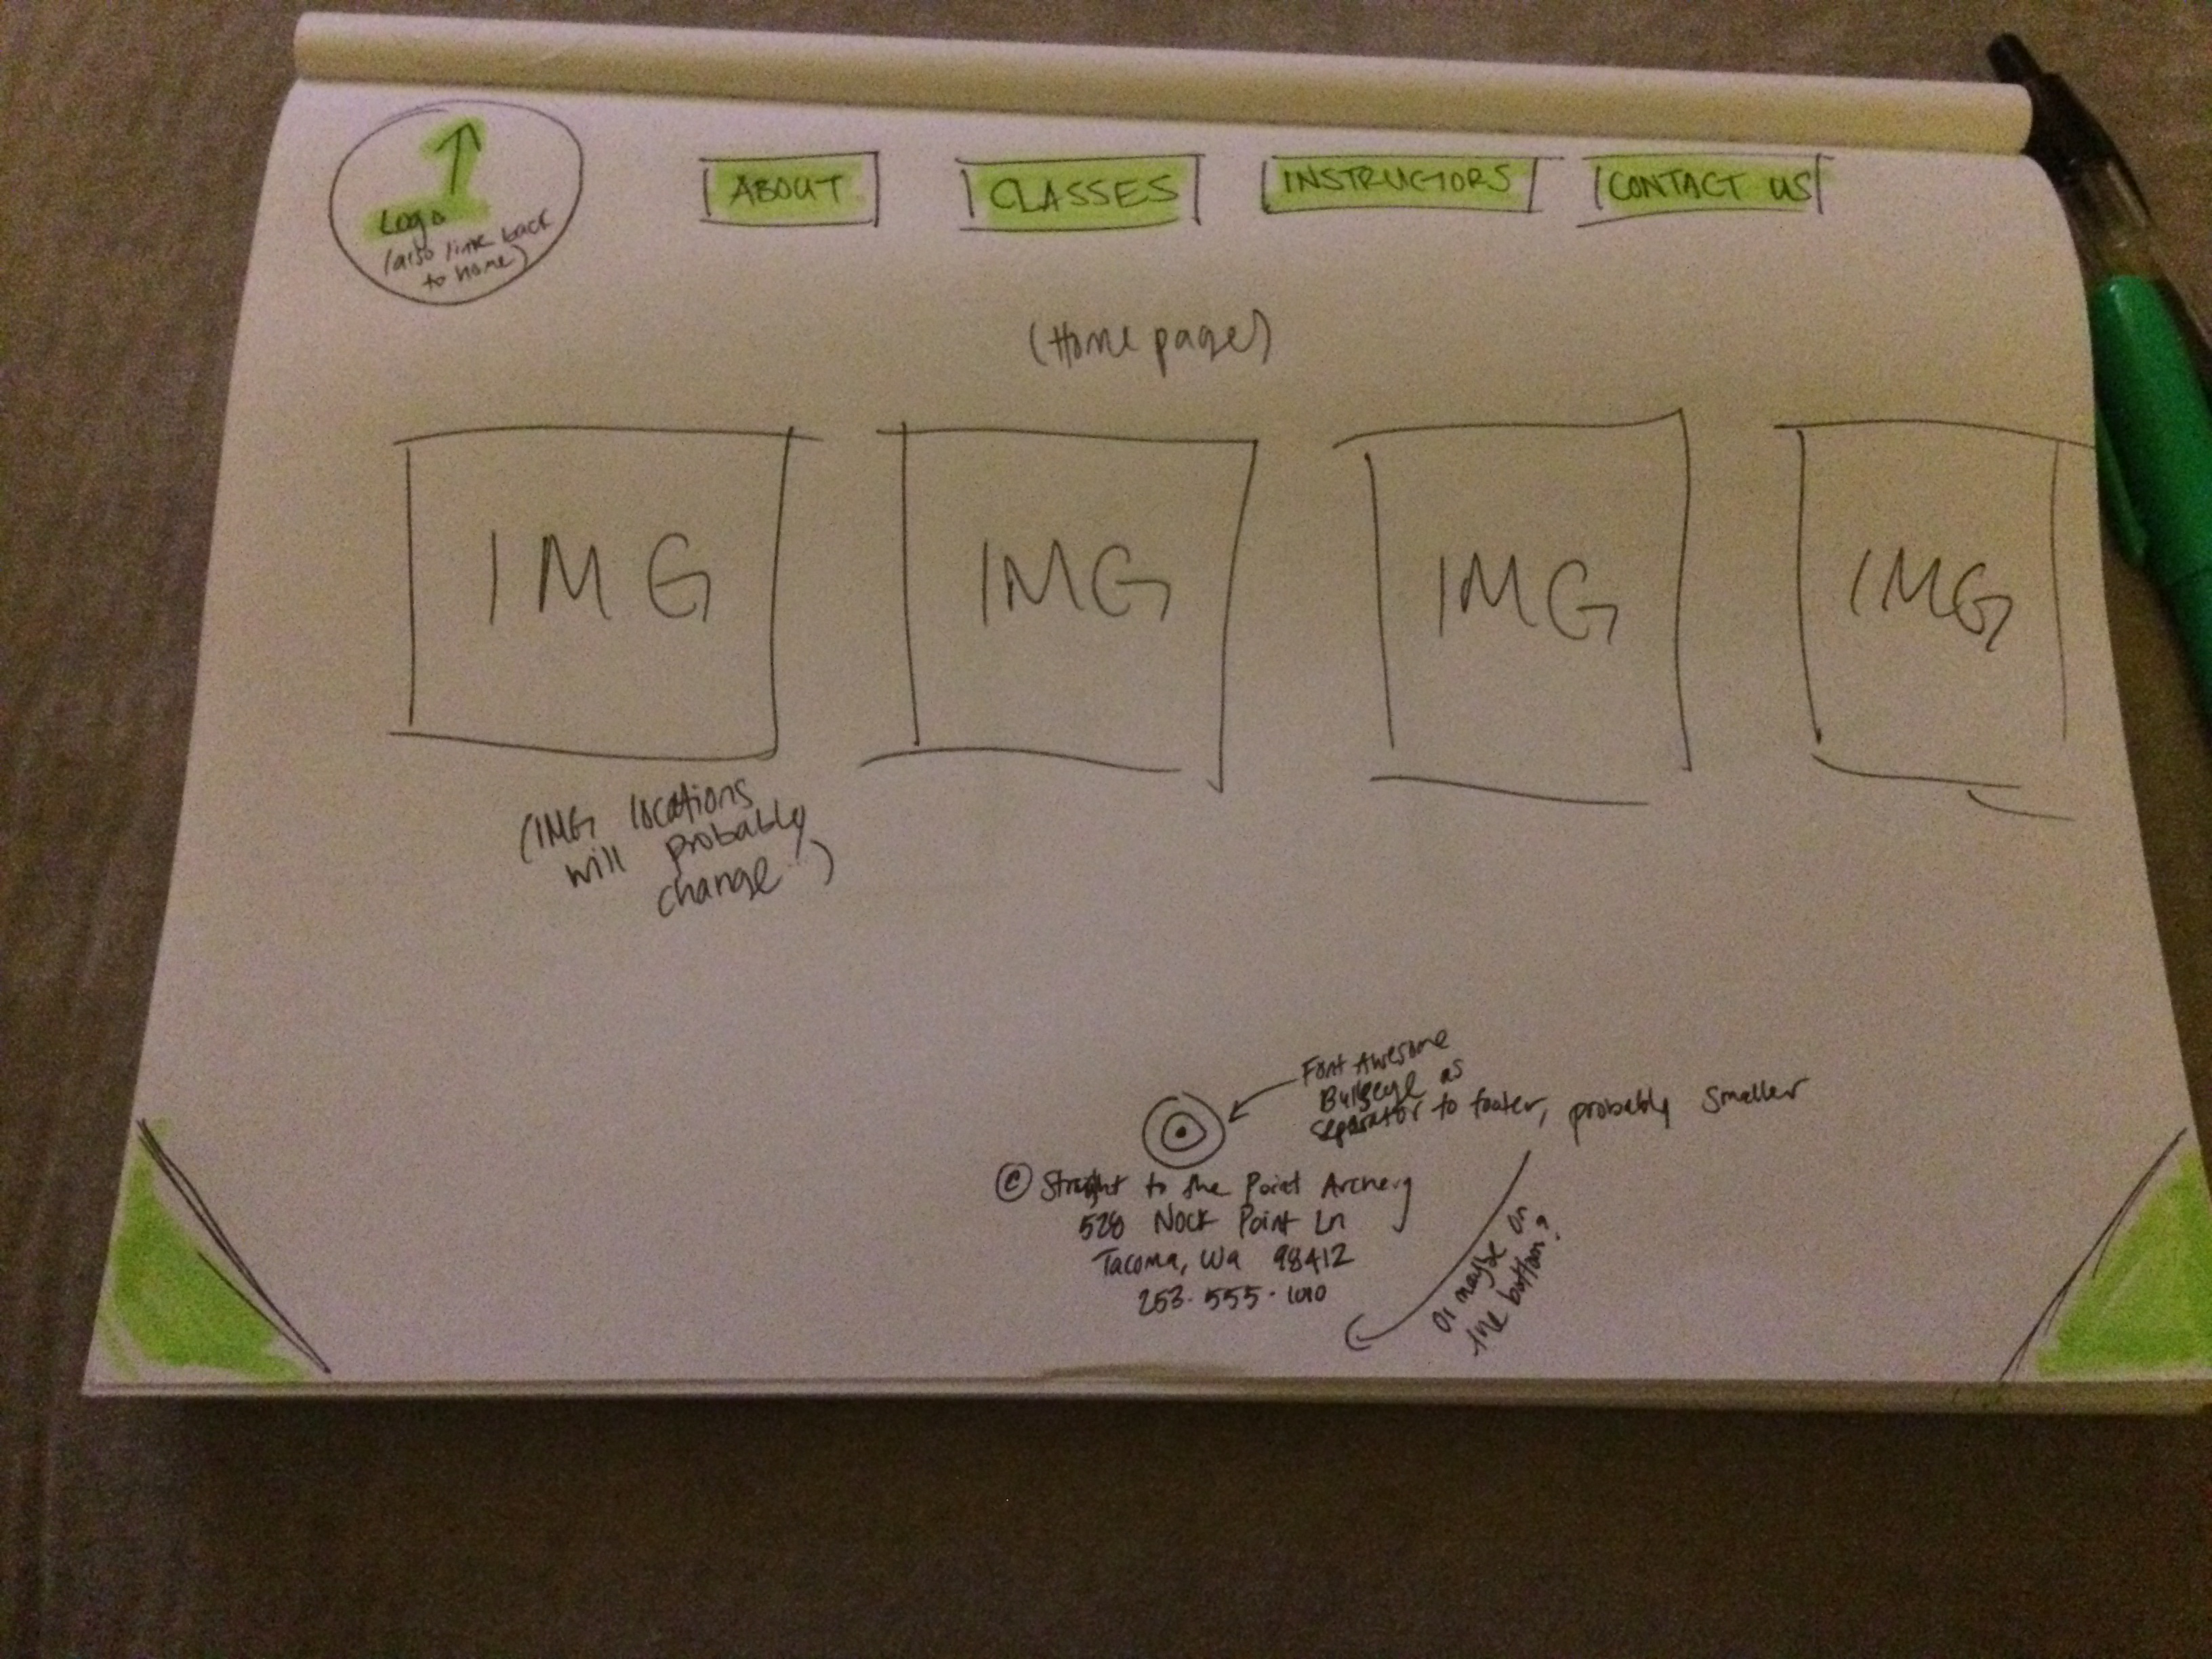 Logo
(also link back
to home)
ABOUT
CLASSES
INSTRUCTORS
CONTACT US
(Home page)
IMG
IMG
IMG
IMG
(IMG locations
will probably
change)
Font Awesome
Bullseye as
separator to footer, probably smaller
© Straight to the Point Archery
528 Nock Point Ln
Tacoma, Wa 98412
253.555.1010
or maybe on
the bottom?